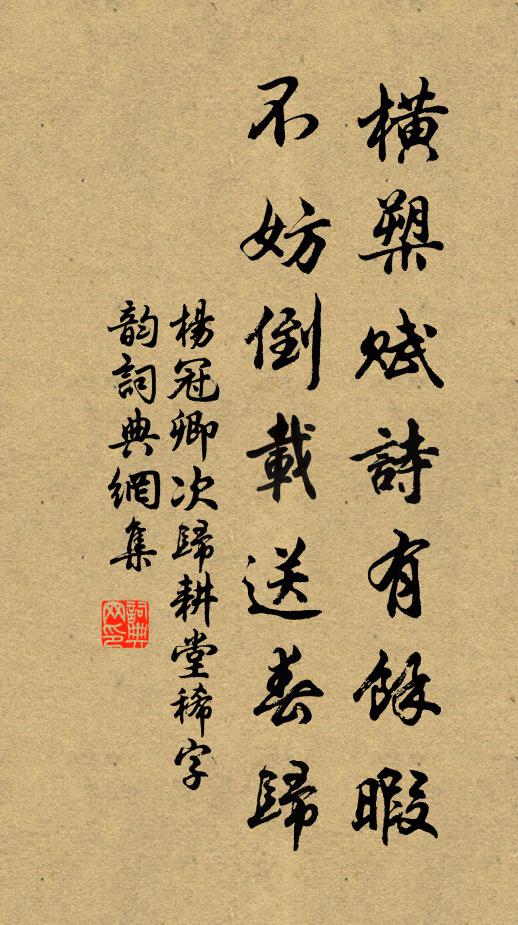 橫槊賦詩有餘暇
不妨倒載送春歸
楊冠卿次歸耕堂稀字
韵詞典網集
詞典
网印